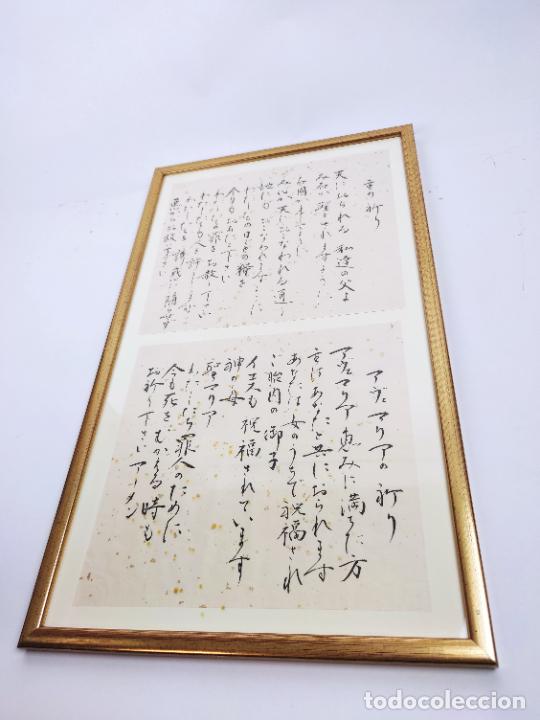 主の祈り
天におられる 私達の父よ
み名が聖とされますように
み国が来ますように
みこころが天に行なわれる通り
地にも行なわれますように
わたしたちの日ごとの糧を
今日もお与え下さい
わたしたちの罪をお赦し下さい
わたしたちも人を許します
わたしたちを誘惑に陥らせず
悪からお救い下さい
アヴェマリアの祈り
アヴェマリア 恵みに満ちた方
主はあなたと共におられます
あなたは女のうちで祝福され
ご胎内の御子
イエスも祝福されています
神の母
聖マリア
わたしたち罪人のために
今も死をむかえる時も
お祈り下さい アーメン
todocoleccion